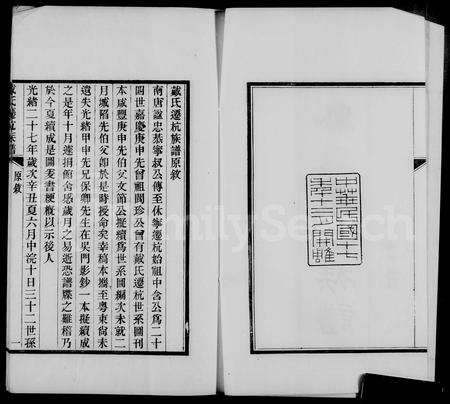 中華民國十七
年十二月開雕
戴氏遷杭族譜原敘
南唐諡忠恭寧叔公傳至休寧遷杭始祖中含公爲二十
四世嘉慶庚申先曾祖閬珍公曾有戴氏遷杭世系圖刊
本咸豐庚申先伯父文節公擬續爲世系圖編次未就二
月城陷先伯父卽於是時授命矣幸稿本攜至粵東尙未
遺失光緒甲申先兄保卿先生在吳門影鈔一本擬續成
之是年十月遽捐館舍感歲月之易逝恐譜牒之難稽乃
於今夏續成是圖爰書梗概以示後人
光緒二十七年歲次辛丑夏六月中浣十日三十二世孫
戴氏遷杭族譜 原敘 一
FamilySearch